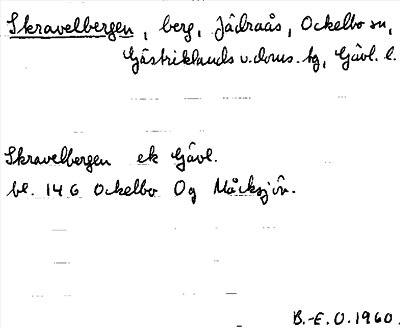 Skravelbergen, berg, Jädraås, Ockelbo sn,
Gästriklands v. doms. hg, Gävl. l.
Skravelbergen ek Gävl.
bl. 146 Ockelbo Og Måcksjön.
B.-E. O. 1960.